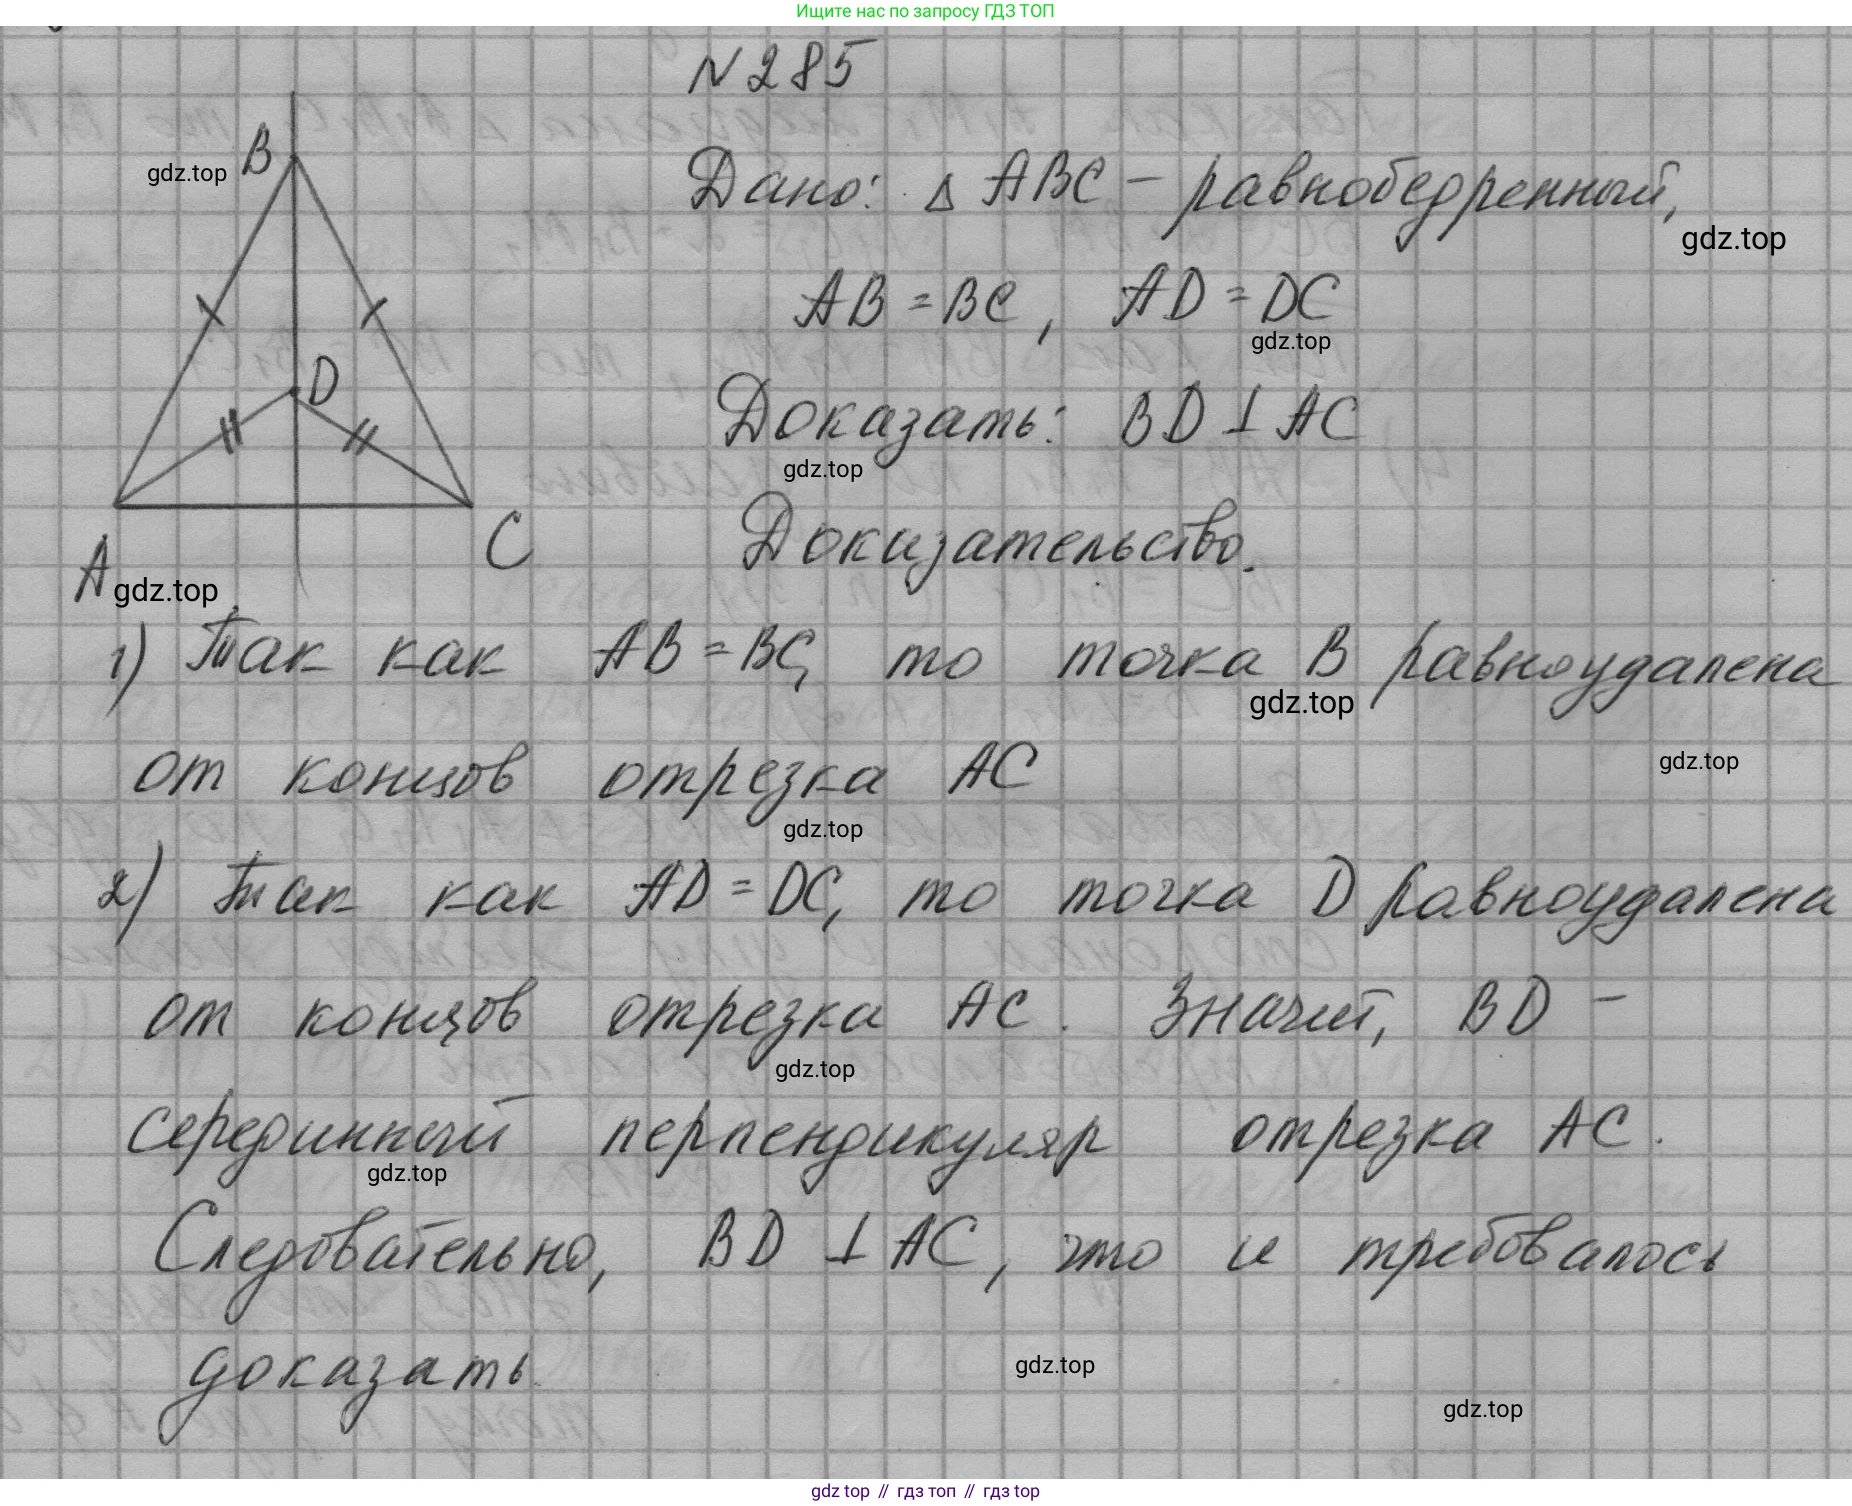 Ищите нас по запросу ГДЗ ТОП
N 285
B
gdz.top
Дано: △ ABC – равнобедренный,
gdz.top
AB = BC, AD = DC
gdz.top
D
Доказать: BD ⊥ AC
gdz.top
A
C
Доказательство.
gdz.top
1) Так как AB = BC, то точка B равноудалена
gdz.top
от концов отрезка AC
gdz.top
gdz.top
2) Так как AD = DC, то точка D равноудалена
от концов отрезка AC. Значит, BD –
gdz.top
серединный перпендикуляр отрезка AC.
gdz.top
Следовательно, BD ⊥ AC, что и требовалось
доказать.
gdz.top
gdz.top
gdz top // гдз топ // гдз top